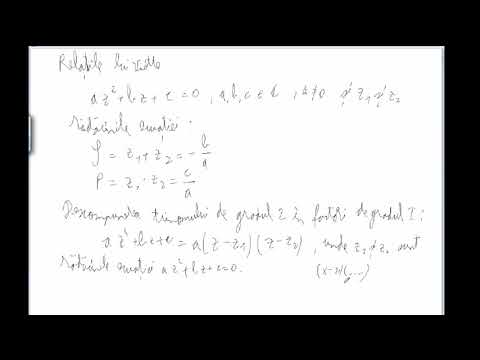 Relațiile lui Viette
az²+bz+c=0, a,b,c∈ℂ, a≠0 și z₁ și z₂
rădăcinile ecuației.
S = z₁+z₂ = -b/a
P = z₁·z₂ = c/a
Descompunerea trinomului de gradul 2 în factori de gradul I:
az²+bz+c = a(z-z₁)(z-z₂), unde z₁ și z₂ sunt
rădăcinile ecuației az²+bz+c=0.